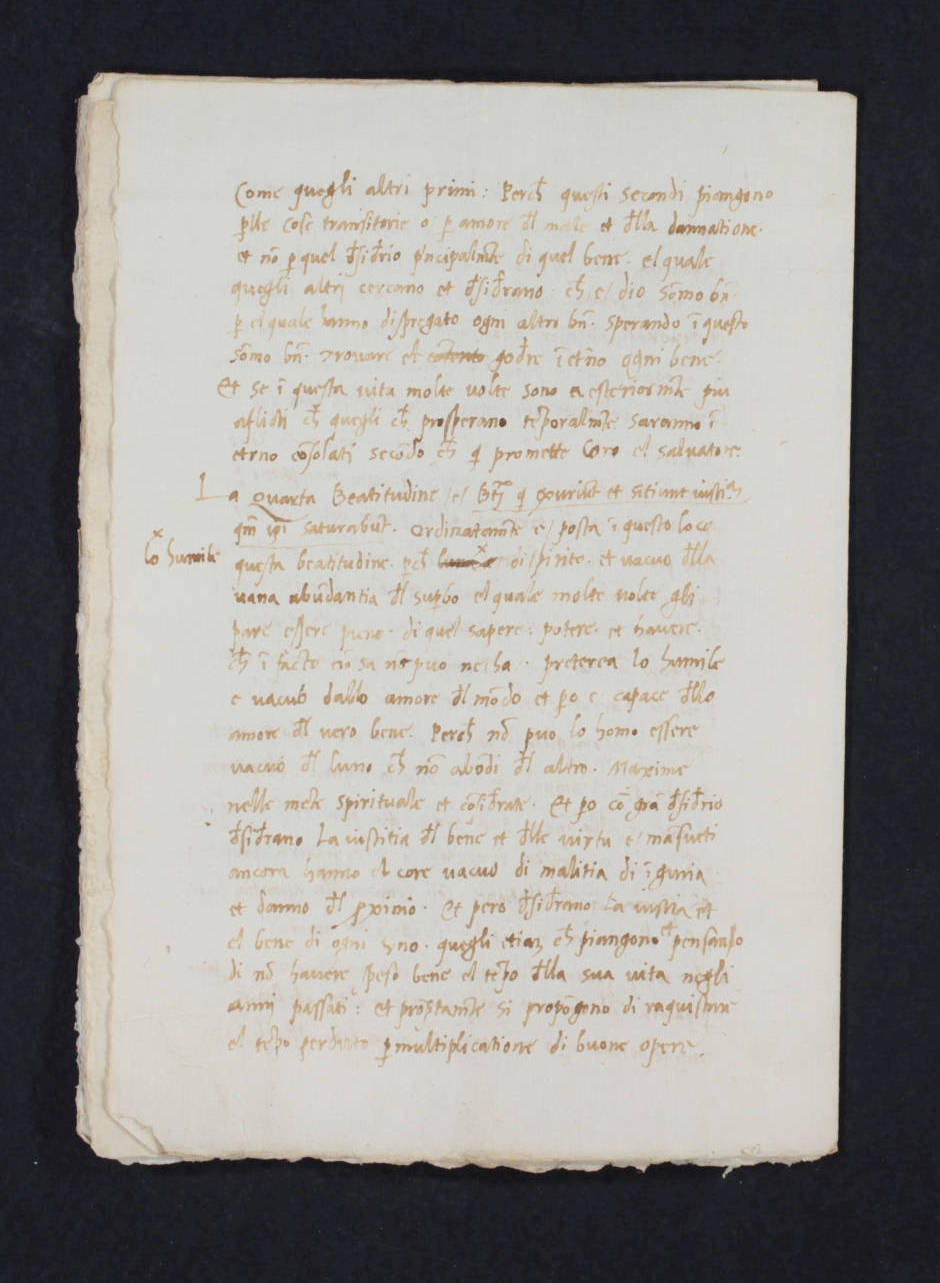 Come quegli altri primi: Perch̄ questi secondi piangono
p̱lle cose transitorie o p̱ amore d̄l male et d̄lla dannatione.
et nō p̱ quel d̄sid̄rio pn̄cipalmt̄e di quel bene. el quale
quegli altrj cercano et d̄sid̄rano. ch̄ e/ dio sōmo bn̄.
p̱ el quale hanno dispregato ogni altri bn̄. sperando ī questo
sōmo bn̄. trovare et god̄re ī etn̄o ogni bene.
Et se ī questa vita molte volte sono esteriormt̄e piu
aflicti ch̄ quegli ch̄ prosperano tēporalmt̄e saranno ī
etrno cōsolati secōdo ch̄ qi promette loro el salvatore.
La Quarta Beatitudine /e/ Bt̄j qi exuriūt et sitiunt iustiā
qm̄ ip̄i saturabūt. Ordinatamt̄e e/ posta ī questo loco
lo humile questa beatitudine. pch̄ di spirito. et vacuo d̄lla
vana abūdantia d̄l sup̱bo el quale molte volte gli
pare essere pieno. di quel sapere: potere. et havere.
ch̄ ī facto nō sa nō puo ne ha. preterea lo humile
e vacuo dallo amore d̄l mōdo et p̱o e/ capace d̄llo
amore d̄l vero bene. Perch̄ nō puo lo homo essere
vacuo d̄l luno ch̄ nō abōdi d̄l altro. Maxime
nelle mēte spirituale et cōsid̄rate. Et p̱o cō grā d̄sid̄rio
d̄sid̄rano La iustitia d̄l bene et d̄lle virtu e/ māsueti
ancora hanno el core vacuo di malitia di īguria
et danno d̄l p̱ximo. Et pero d̄sid̄rano la iustia et
el bene di ogni uno. quegli etiam ch̄ piangono et pensando
di nō havere speso bene el tēpo d̄lla sua vita negli
anni passati: et prōptamt̄e si propōgono di raquistare
el tēpo perduto p̱ multiplicatione di buone opere.